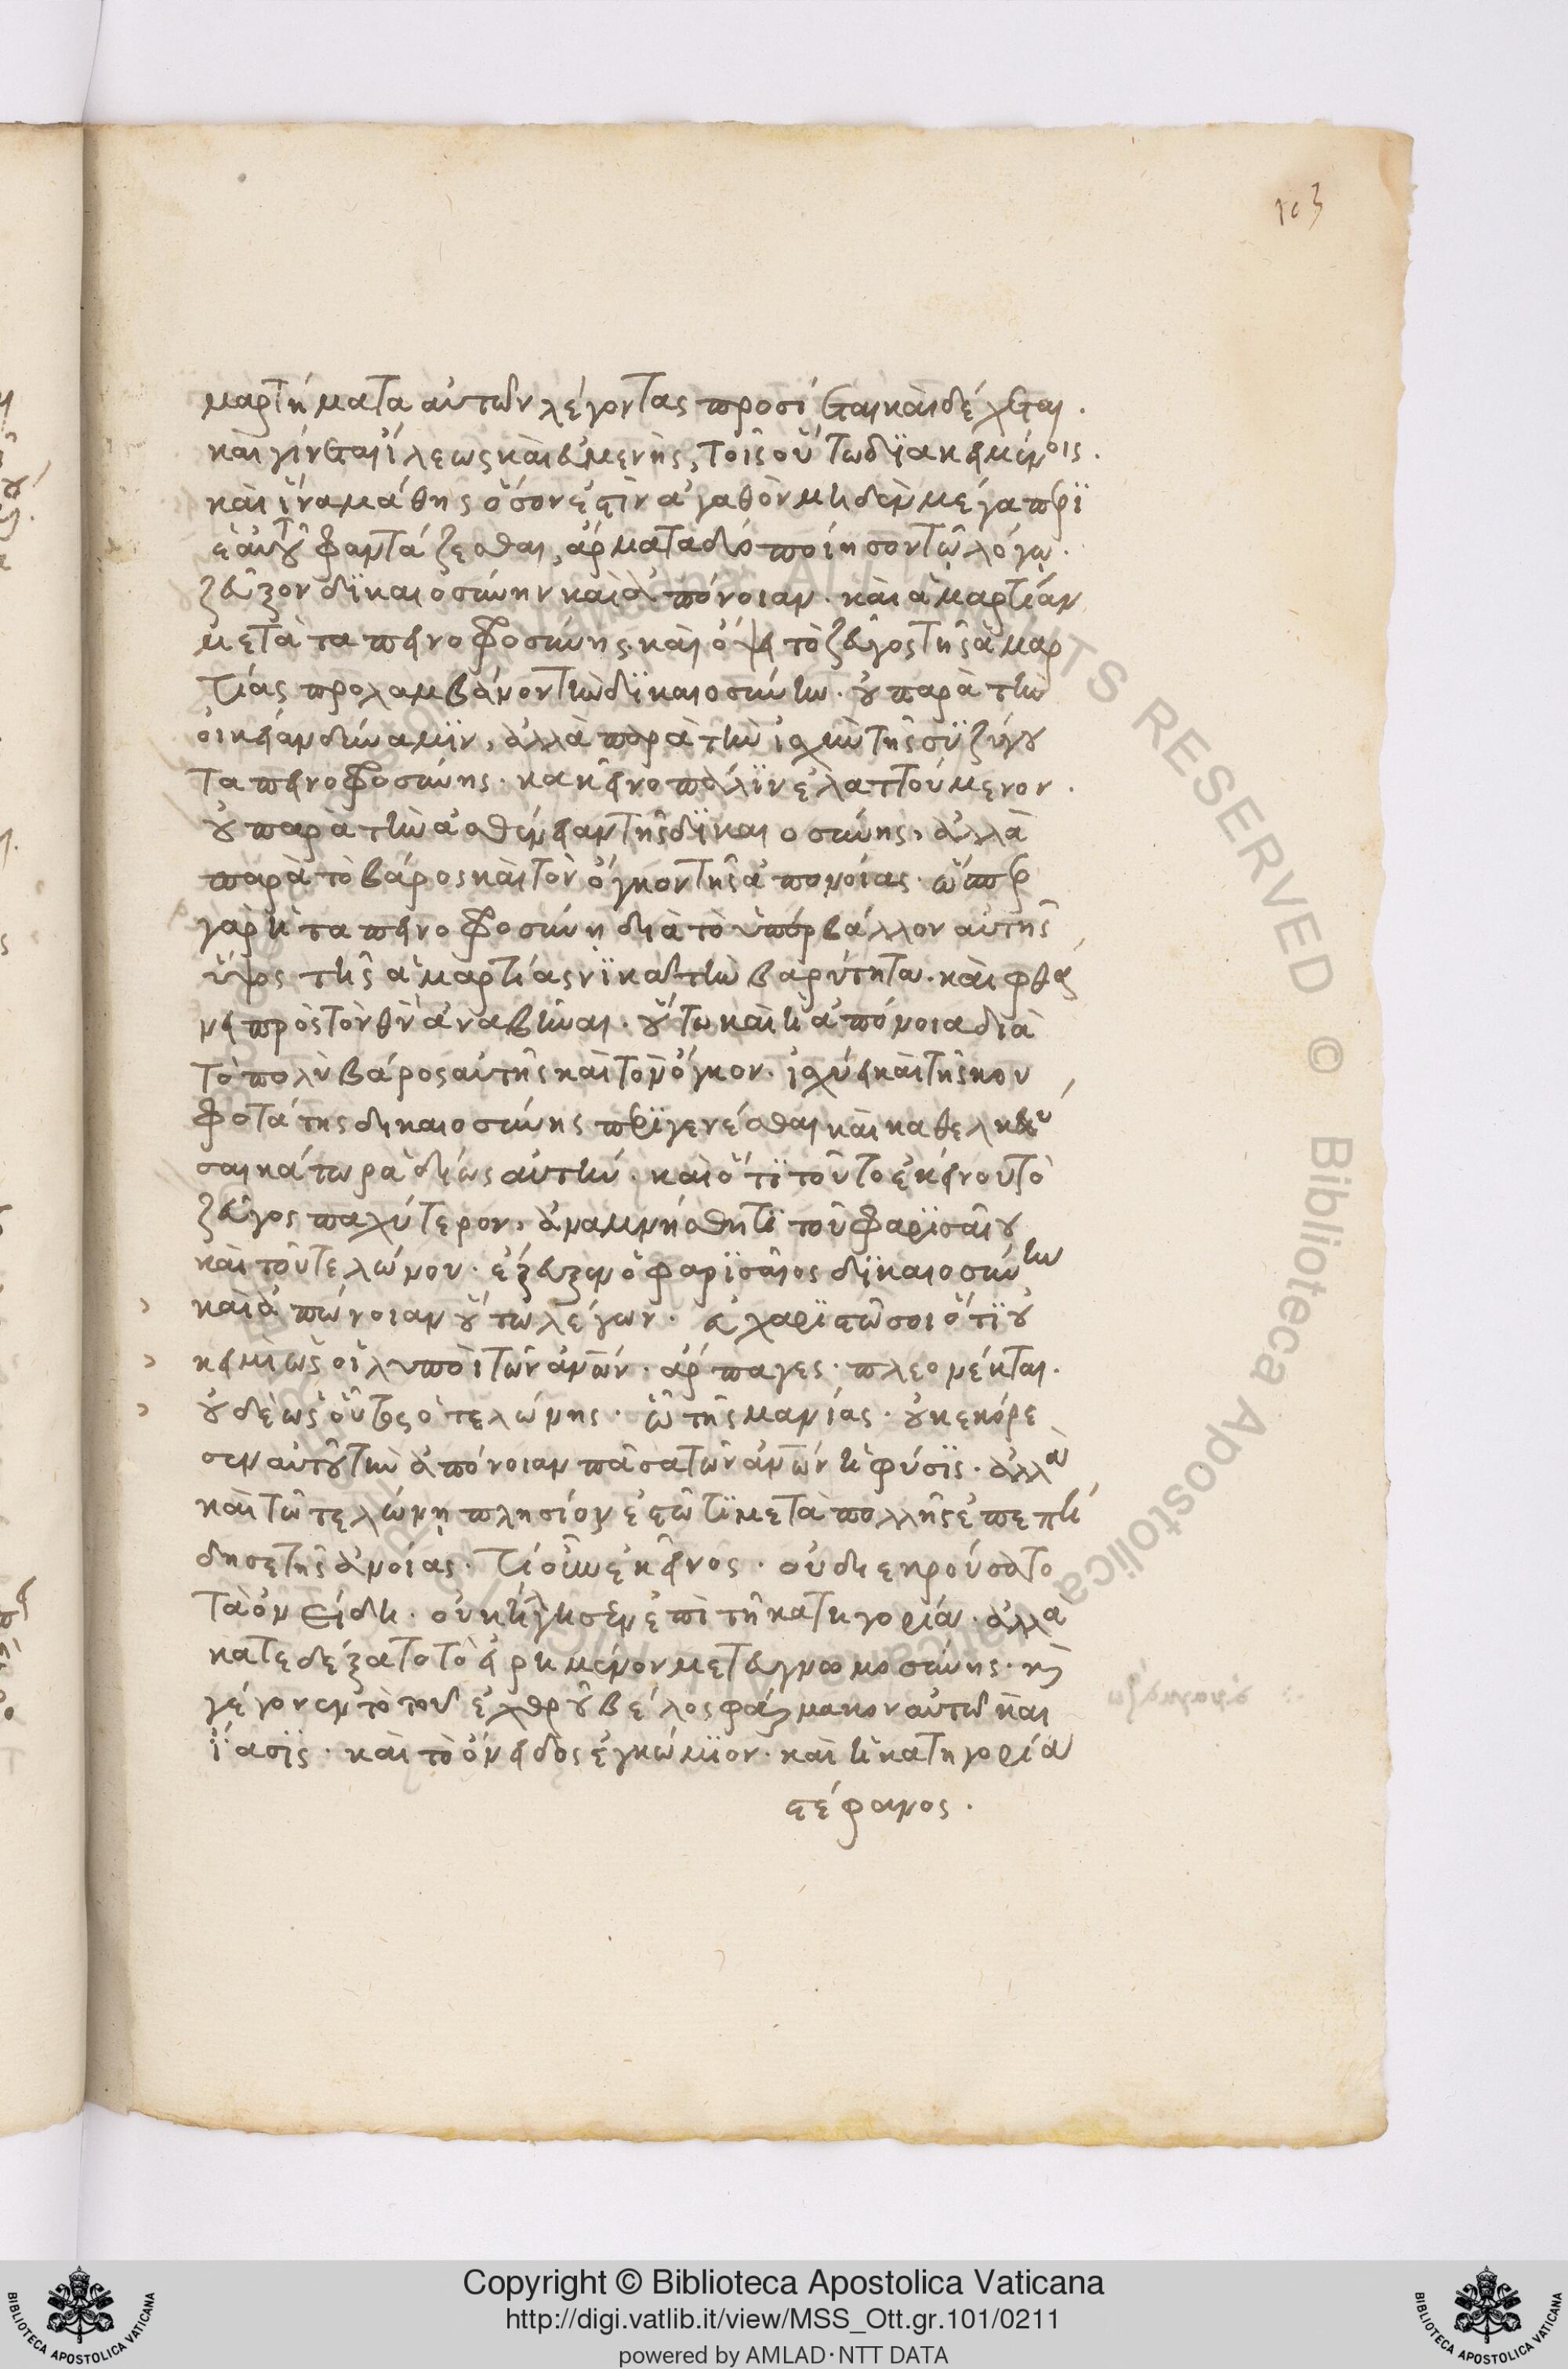 103
μαρτήματα αὐτῶν λέγοντας προσίεται καὶ δέχεται.
καὶ γίνεται ἵλεως καὶ εὐμενὴς, τοῖς οὕτω διακειμένοις.
καὶ ἵνα μάθης ὅσον ἐστὶν ἀγαθὸν μηδὲν μέγα περὶ
ἑαυτοῦ φαντάζεσθαι, ἅρματα δύο ποίησον τῷ λόγῳ.
ζεῦξον δικαιοσύνην καὶ ἀπόνοιαν. καὶ ἁμαρτίαν
μετὰ ταπεινοφροσύνης. καὶ ὄψει τὸ ζεῦγος τῆς ἁμαρ
τίας προλαμβάνον τὴν δικαιοσύνην. οὐ παρὰ τὴν
οἰκείαν δύναμιν, ἀλλὰ παρὰ τὴν ἰσχὺν τῆς συζύγου
ταπεινοφροσύνης. κακεῖνο πάλιν ἐλαττούμενον.
οὐ παρὰ τὴν ἀσθένειαν τῆς δικαιοσύνης, ἀλλὰ
παρὰ τὸ βάρος καὶ τὸν ὄγκον τῆς ἀπονοίας. ὥσπερ
γὰρ ἡ ταπεινοφροσύνη διὰ τὸ ὑπερβάλλον αὐτῆς
ὕψος τῆς ἁμαρτίας νικᾶ τὴν βαρύτητα. καὶ φθά
νει πρὸς τὸν θν ἀναβῆναι. οὕτω καὶ ἡ ἀπόνοια διὰ
τὸ πολὺ βάρος αὐτῆς καὶ τὸν ὄγκον. ἰσχύει καὶ τῆς κου
φοτάτης δικαιοσύνης περιγενέσθαι καὶ καθελκύ
σαι κάτω ραδίως αὐτήν. καὶ ὅτι τοῦτο ἐκείνου τὸ
ζεῦγος παχύτερον, ἀναμνήσθητι τοῦ φαρισαίου
καὶ τοῦ τελώνου. ἔζευξεν ὁ φαρισαῖος δικαιοσύνην
καὶ ἀπώνοιαν οὕτω λέγων. εὐχαριστῶ σοι ὅτι οὐ
κ εἰμι ὡς οἱ λυποὶ τῶν ἀνῶν. ἅρπαγες. πλεονέκται.
οὐδὲ ὡς οὗτος ὁ τελώνης. ὢ τῆς μανίας. οὐκ ἐκόρε
σεν αὐτοῦ τὴν ἀπόνοιαν πᾶσα τῶν ἀνῶν ἡ φύσις. ἀλλὰ
καὶ τῶ τελώνῃ πλησίον ἐστῶτι μετὰ πολλῆς ἐπεπή
δησε τῆς ἀνοίας. τί οὖν ἐκεῖνος. οὐ διεκρούσατο
τὰ ὀνείδη. οὐκ ἤλγησεν ἐπὶ τῆ κατηγορία. ἀλλὰ
κατεδέξατο τὸ εἰρημένον μετ εὐγνωμοσύνης. κὶ
γέγονεν τὸ τοῦ ἐχθροῦ βέλος φάρμακον αὐτῶ καὶ
ἴασις. καὶ τὸ ὄνειδος ἐγκώμιον. καὶ ἡ κατηγορία
στέφανος.
© Biblioteca Apostolica Vaticana
Copyright © Biblioteca Apostolica Vaticana
http://digi.vatlib.it/view/MSS_Ott.gr.101/0211
powered by AMLAD·NTT DATA
BIBLIOTECA APOSTOLICA VATICANA
BIBLIOTECA APOSTOLICA VATICANA